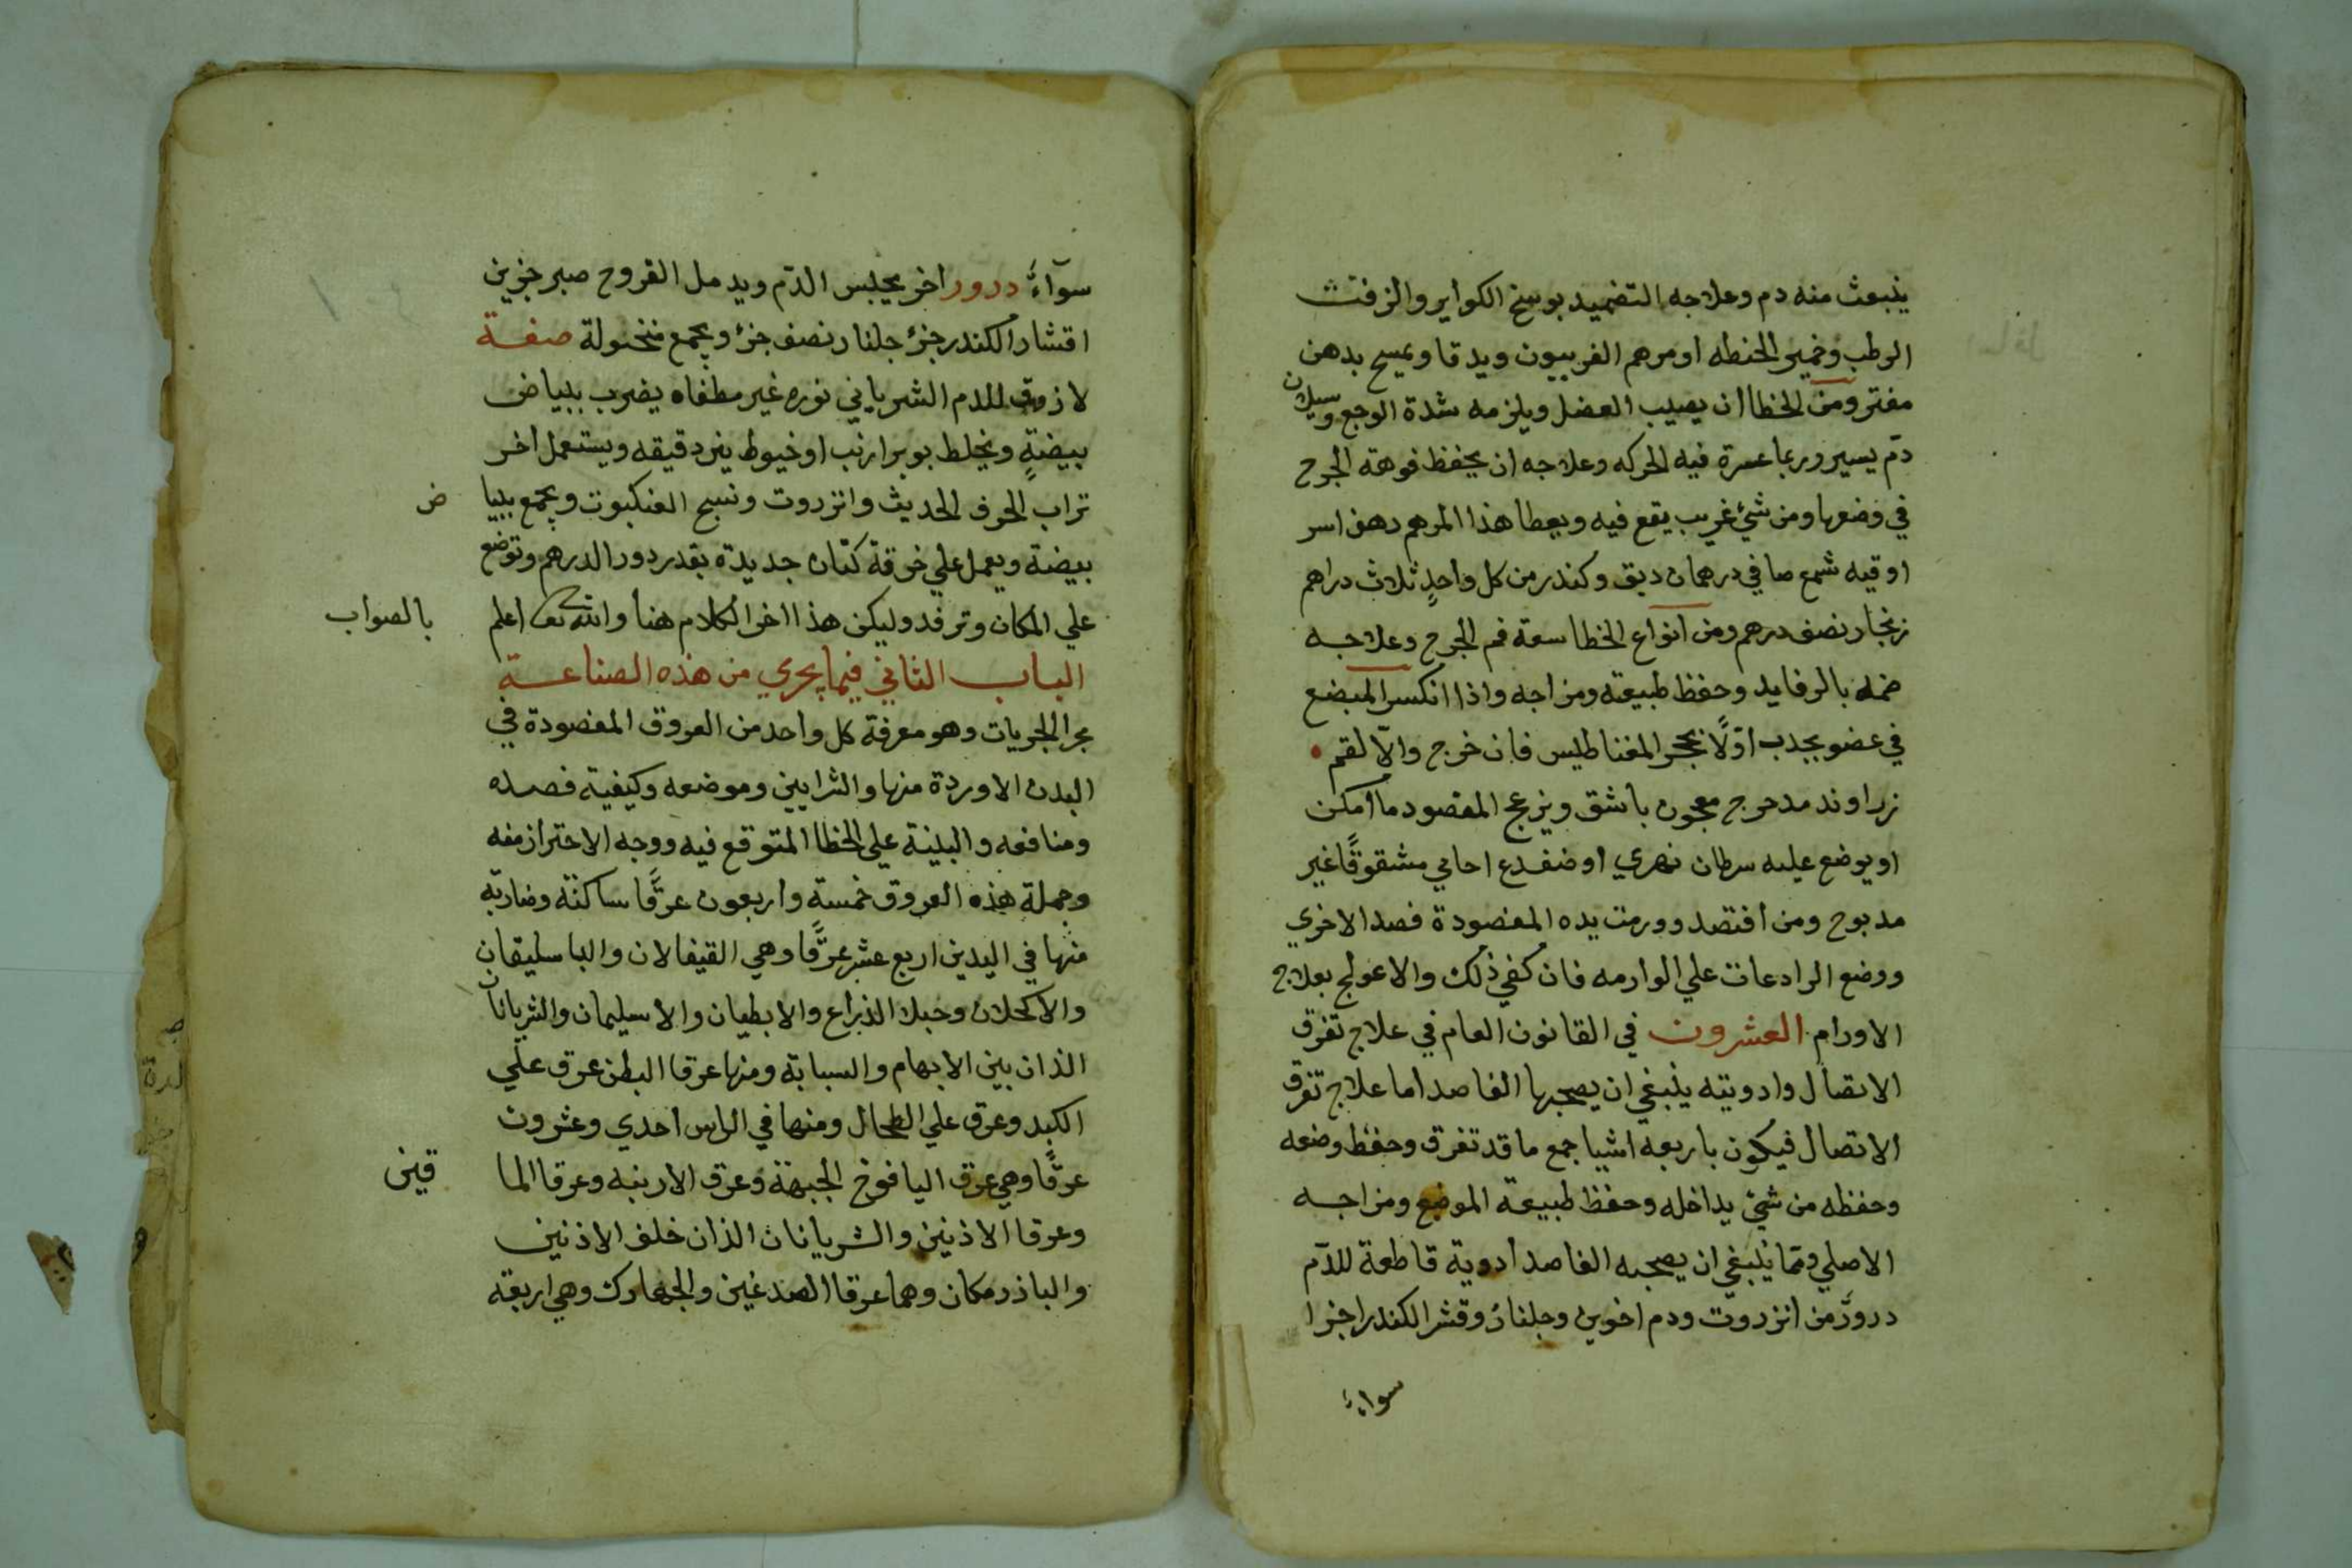 ينبعث منه دم وعلاجه التضميد بوسخ الكواير والزفت
الرطب وخمير الحنطه او مرهم الفربيون ويدقا ويمسح بدهن
مفتر ومن الخطا ان يصيب العضل ويلزمه شدة الوجع وسيلان
دم يسير وربما عسرة فيه الحركه وعلاجه ان يحفظ فوهة الجرح
في وضعها ومن شئ غريب يقع فيه ويعطا هذا المرهم دهن اس
اوقيه شمع صافي درهمان دبق وكندر من كل واحدٍ ثلاث دراهم
زنجار نصف درهم ومن انواع الخطا سعة فم الجرح وعلاجه
ضمه بالرفايد وحفظ طبيعته ومزاجه واذا انكسر المبضع
في عضو يجذب اوّلاً بحجر المغناطيس فان خرج والاّ لقم
زراوند مدحرج معجون باشق ويزعج المفصود ما امكن
او يوضع عليه سرطان نهري او ضفدع اجامي مشقوقًا غير
مدبوح ومن افتصد وورمت يده المفصودة فصد الاخري
ووضع الرادعات علي الوارمه فان كفي ذلك والا عولج بعلاج
الاورام العشرون في القانون العام في علاج تفرق
الاتصال وادويته ينبغي ان يصحبها الفاصد اما علاج تفرق
الاتصال فيكون باربعه اشيا جمع ما قد تفرق وحفظ وضعه
وحفظه من شئ يداخله وحفظ طبيعة الموضع ومزاجه
الاصلي ومما ينبغي ان يصحبه الفاصد ادوية قاطعة للدم
درورٌ من انزروت ودم اخوين وجلنار وقشر الكندر اجزا
سواءٌ
سوآءٌ درور اخر يحبس الدّم ويدمل القروح صبر جزين
اقشار الكندر جزؤ جلنار نصف جزؤ ويجمع منخولة صفة
لازوق للدم الشرياني نوره غير مطفاه يضرب ببياض
بيضةٍ ويخلط بوبر ارنب او خيوط دقيقه ويستعمل اخر
تراب الخزف الحديث وانزروت ونسج العنكبوت ويجمع ببيا ض
بيضة ويعمل علي خرقة كتان جديدة بقدر دور الدرهم وتوضع
علي المكان وترفد وليكن هذا اخر الكلام هنا والله تعالى اعلم بالصواب
الباب الثاني فيما يجري من هذه الصناعة
مجرا الجزيات وهو معرفة كل واحد من العروق المفصودة في
البدن الاوردة منها والشرايين وموضعه وكيفية فصده
ومنافعه والبينة علي الخطا المتوقع فيه ووجه الاحتراز منه
وجملة هذه العروق خمسة واربعون عرقًا ساكنة وضاربة
منها في اليدين اربع عشر عرقًا وهي القيفالان والباسليقان
والاكحلان وحبلا الذراع والابطيان والاسيلمان والشريانان
الذان بين الابهام والسبابة ومنها عرقا البطن عرق علي
الكبد وعرق علي الطحال ومنها في الراس احدي وعشرون
عرقًا وهي عرق اليافوخ الجبهة وعرق الارنبه وعرقا الما قين
وعرقا الاذنين والشريانان الذان خلف الاذنين
والباذرمكان وهما عرقا الصدغين والجهارك وهي اربعة